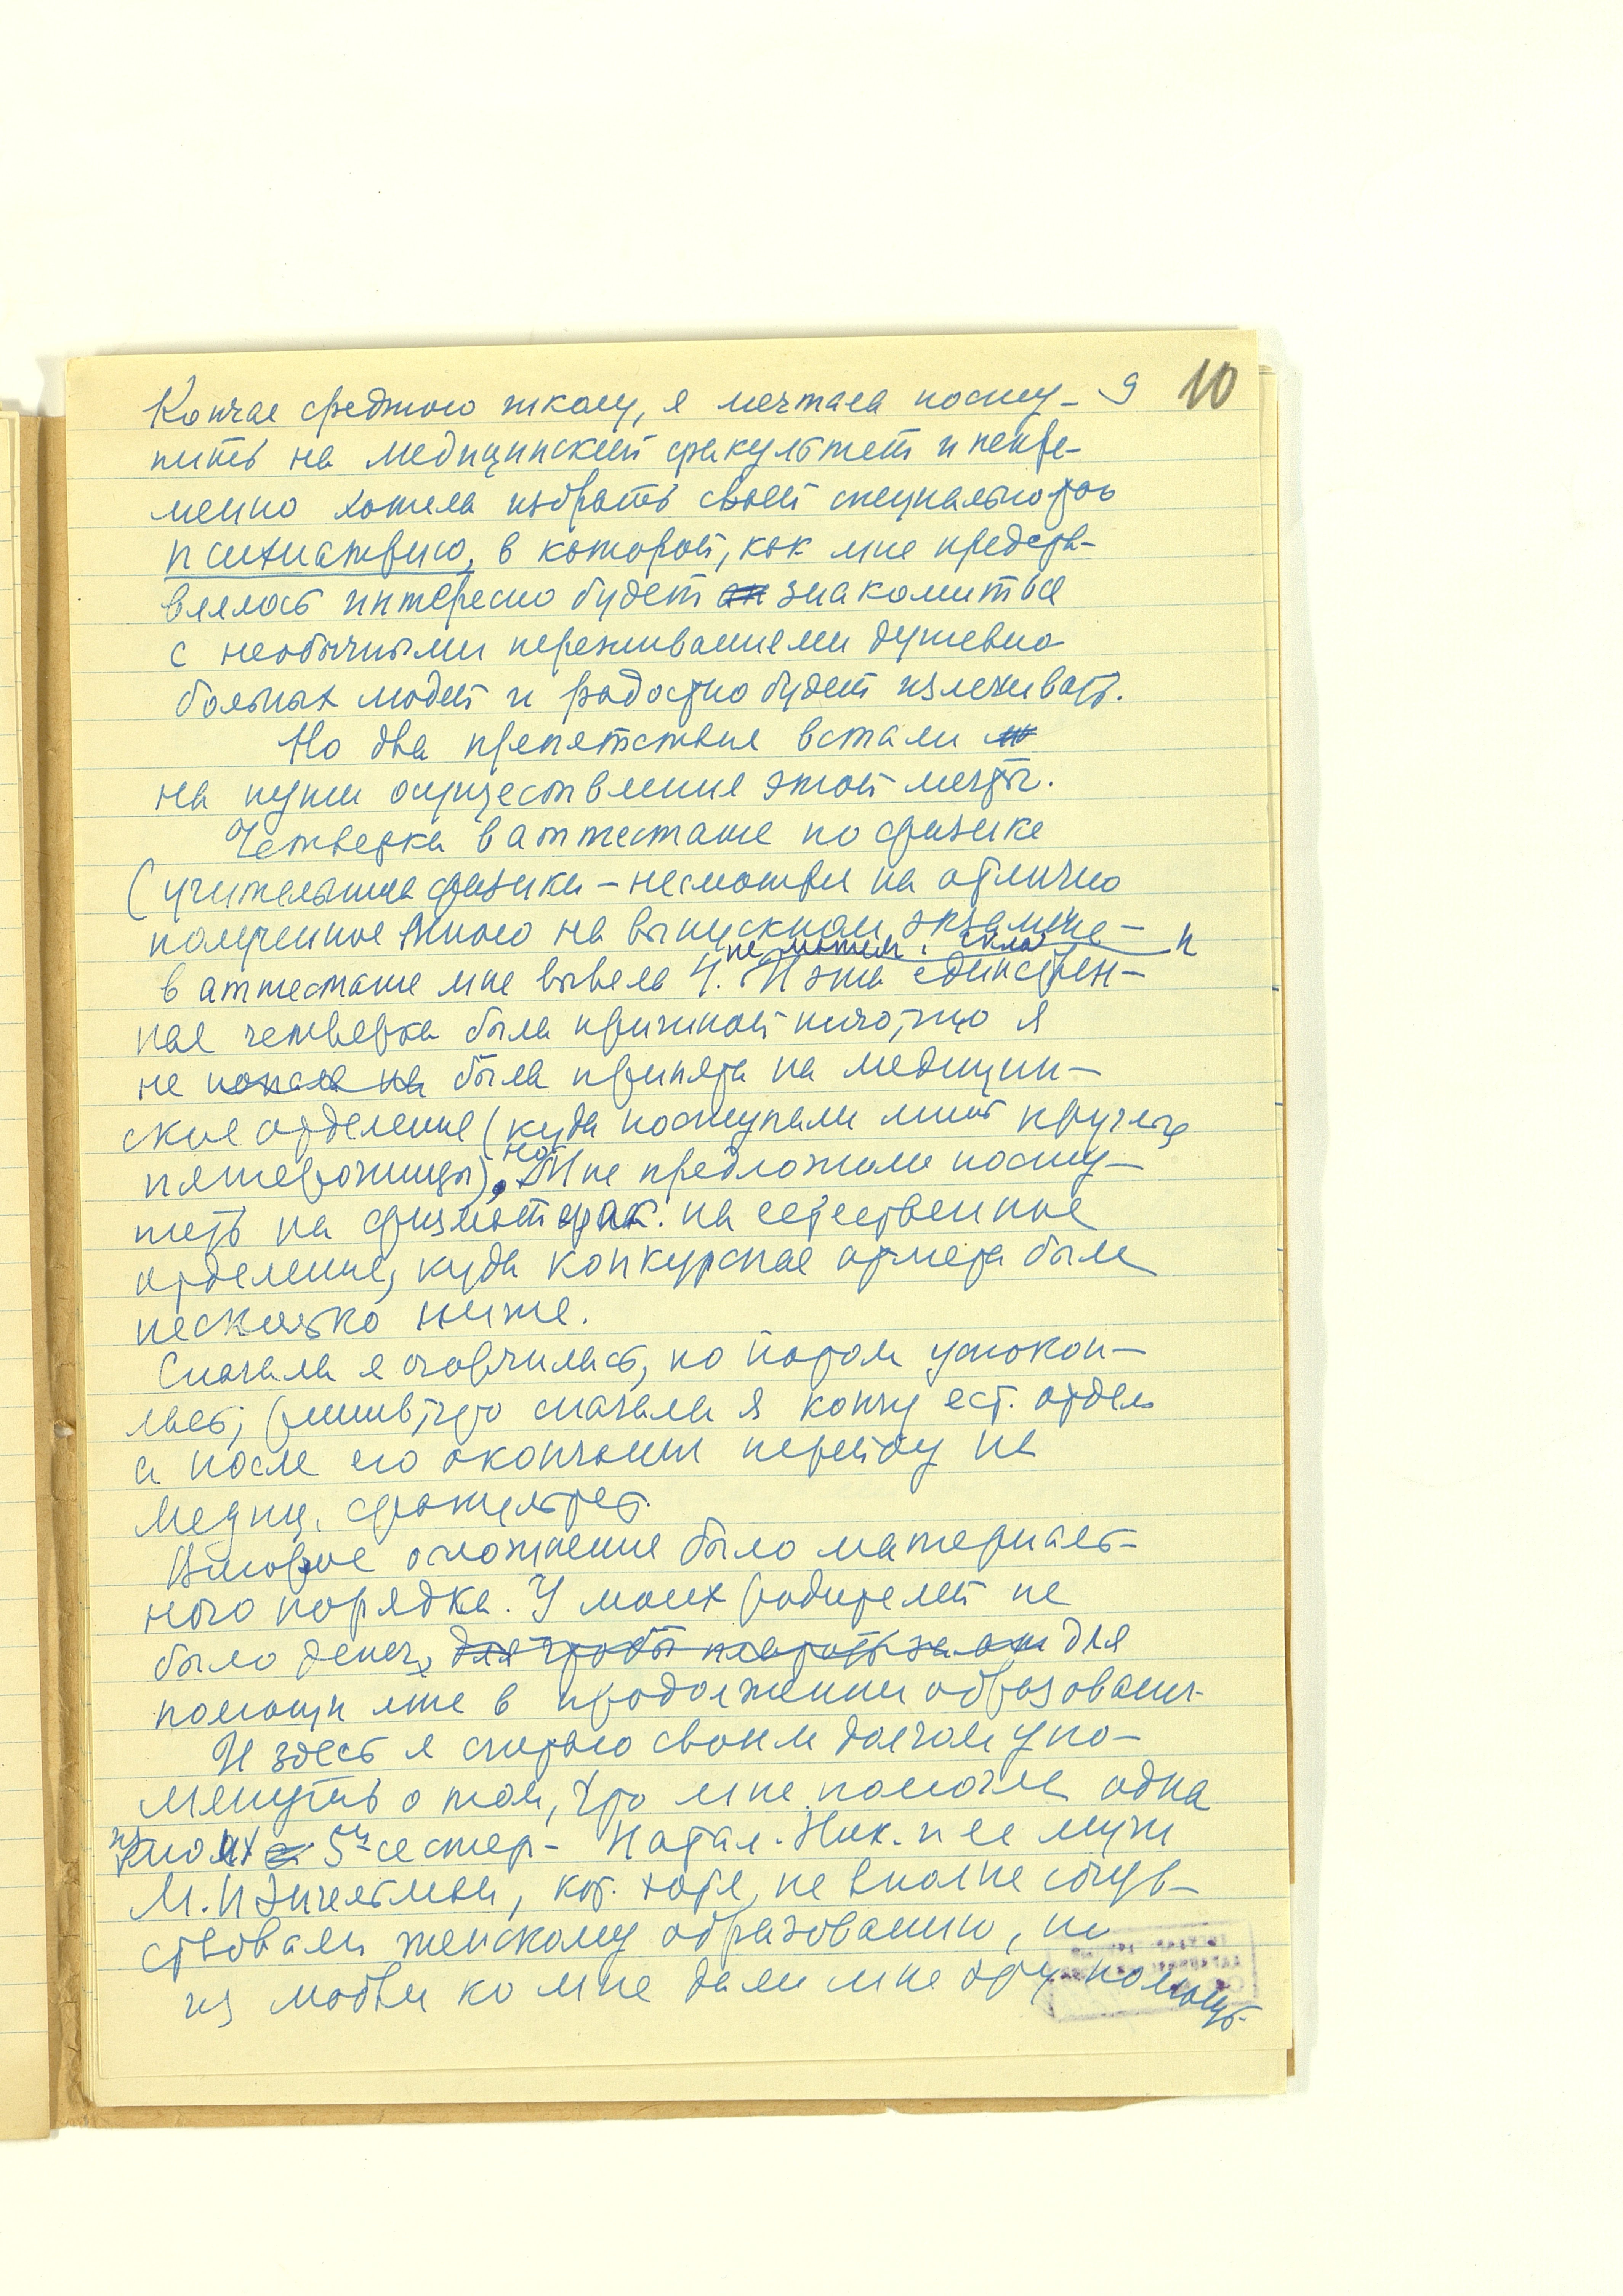 9 10
Кончая среднюю школу, я мечтала посту-
пить на медицинский факультет и непре-
менно хотела избрать своей специальностью
психиатрию, в которой, как мне предста-
влялось интересно будет знакомиться
с необычными переживаниями душевно
больных людей и радостно будет излечивать.
Но два препятствия встали
на пути осуществления этой мечты.
Четверка в аттестате по физике
(учительница физики – несмотря на отлично
полученное мною на выпускном экзамене –
в аттестате мне вывела 4. И эта единствен-
ная четверка была причиной того, что я
не попала на была принята на медицин-
ское отделение (куда поступали лишь круглые
пятерочницы), но Мне предложили посту-
пить на физмат фак. на естественное
отделение, куда конкурсная отметка была
несколько ниже.
Сначала я огорчилась, но потом успокои-
лась, решив, что сначала я кончу ест. отдел
а после его окончания перейду на
Медиц. факультет.
Второе осложнение было материаль-
ного порядка. У моих родителей не
было денег, для
помощи мне в продолжении образования.
И здесь я считаю своим долгом упо-
мянуть о том, что мне помогла одна
из моих 5 сестер – Натал. Ник. и ее муж
М. И Энгельман, кот. хотя, не вполне сочув-
ствовали женскому образованию, но
из любви ко мне дали мне эту помощь.